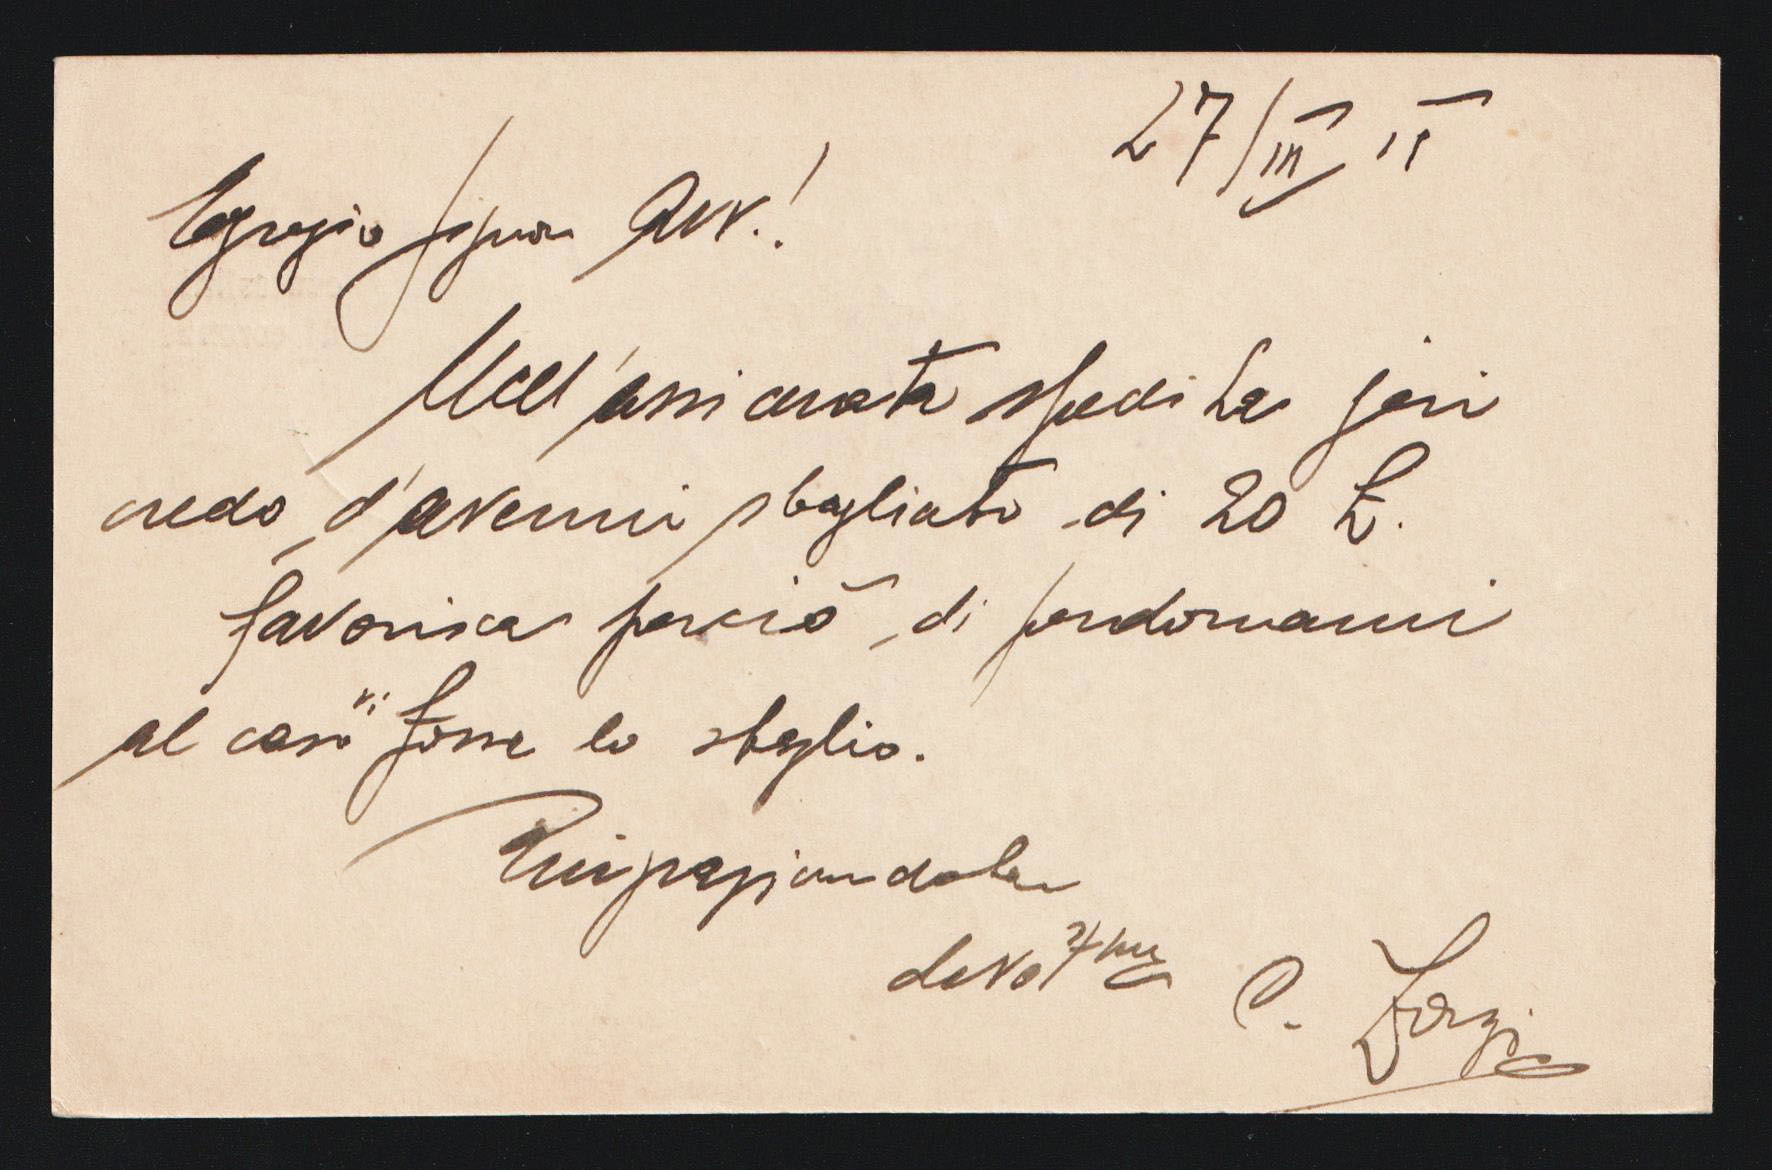 27/III 11
Egregio Signor Avv.!
Nell'assicurata spedita jeri
credo d'avermi sbagliato di 20 Z.
favorisca perciò di perdonarmi
al caso vi fosse lo sbaglio.
Ringraziandola
devotmo C. Zorzi